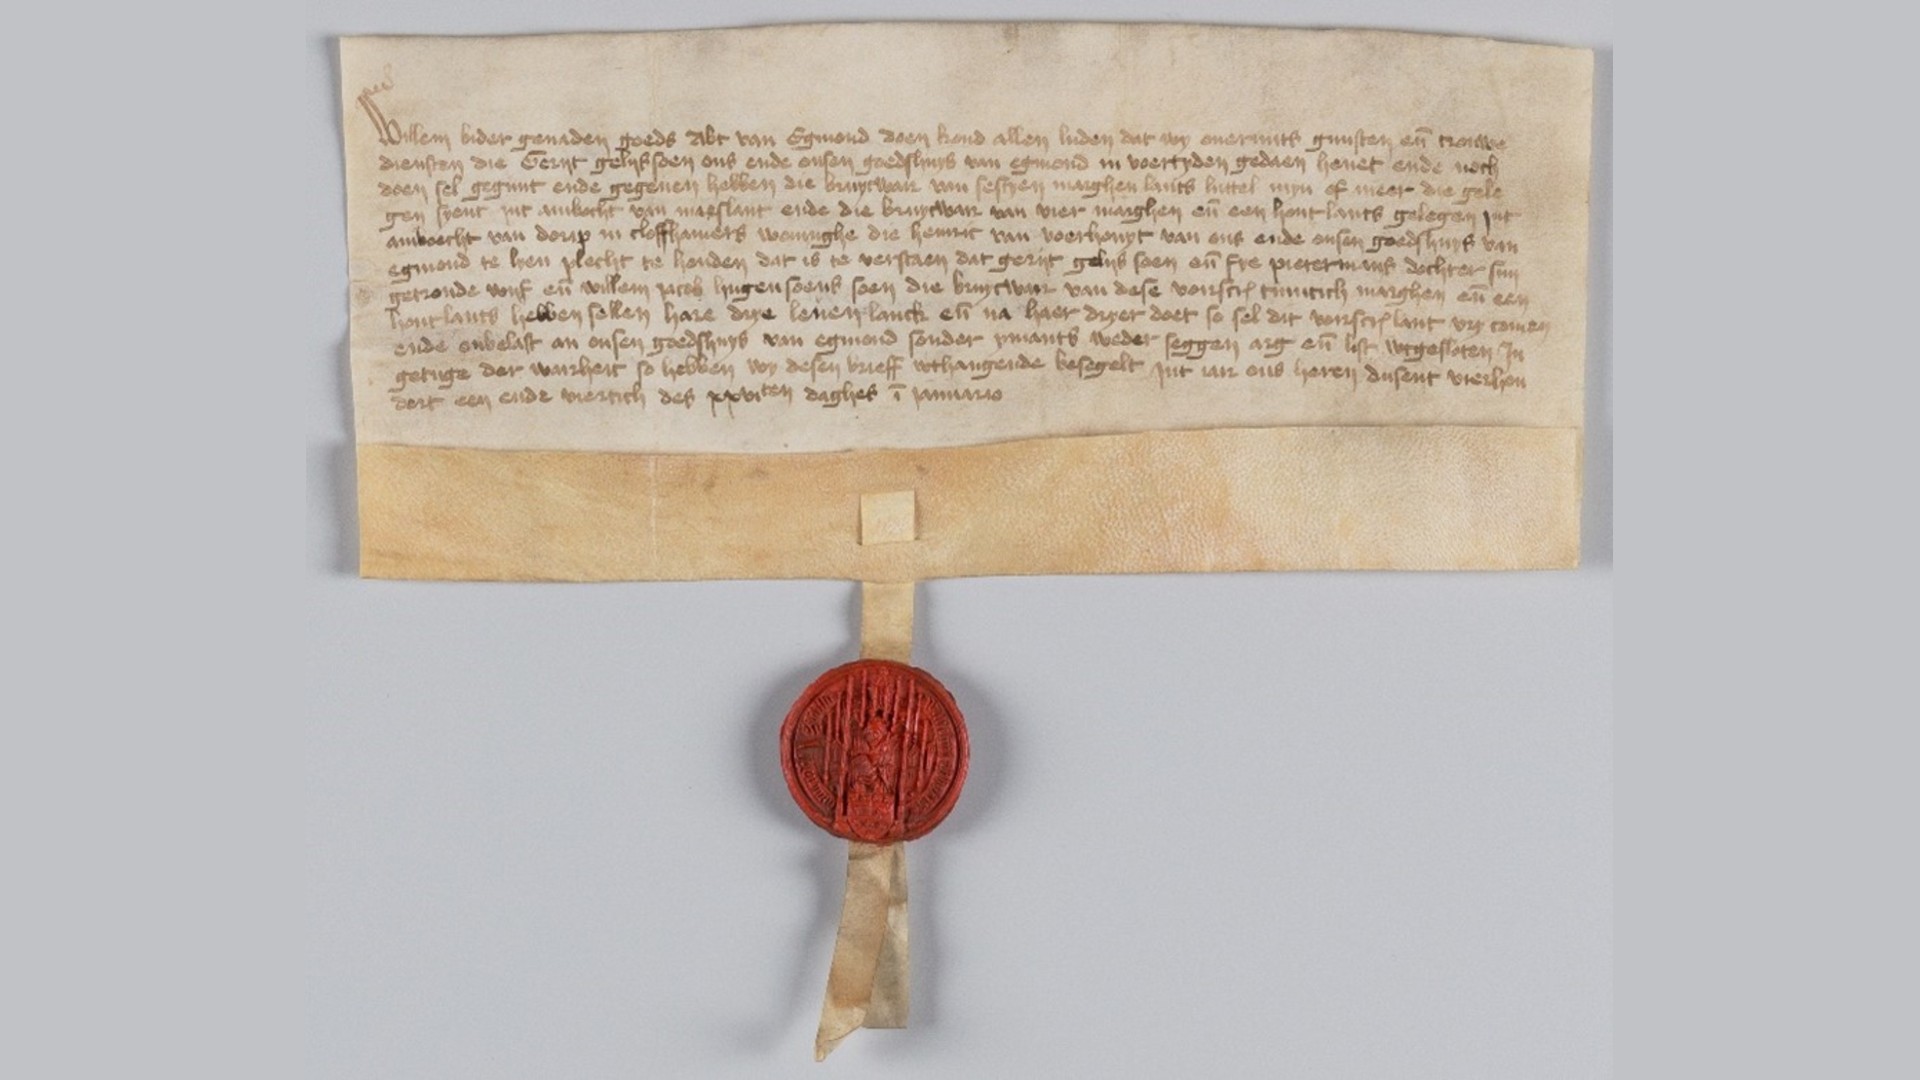 Willem bider genaden goeds Abt van Egmond doen kond allen luden dat wy overmits gunsten eñ trouwe
diensten die Gerijt gelijssoen ons ende onsen goedshuys van egmond in voertyden gedaen hevet ende noch
doen sel gegunt ende gegeven hebben die bruycwair van sestyen marghen lants luttel myn of meer die gele
gen syent int ambocht van maeslant ende die bruycwair van vier marghen eñ een hont lants gelegen int
amboecht van dorp in cloffhamers woninghe die heinric van voerhouyt van ons ende onsen goedshuys van
egmond te lyen plecht te houden dat is te verstaen dat gerijt gelijs soen eñ fye pietermans dochter sijn
getroude wijf eñ willem jacob hugensoens soen die bruycwair van dese voirscr twintich marghen eñ een
hont lants hebben sellen hare drye leven lanck eñ na haer dryer doet so sel dit voirscr lant vry comen
ende onbelast an onsen goedshuys van egmond sonder ymants weder seggen arg eñ list wtgesloten In
getuge der wairheit so hebben wy desen brieff wthangende besegelt Int iair ons heren dusent vierhon
dert een ende viertich des xxviten daghes ī januario